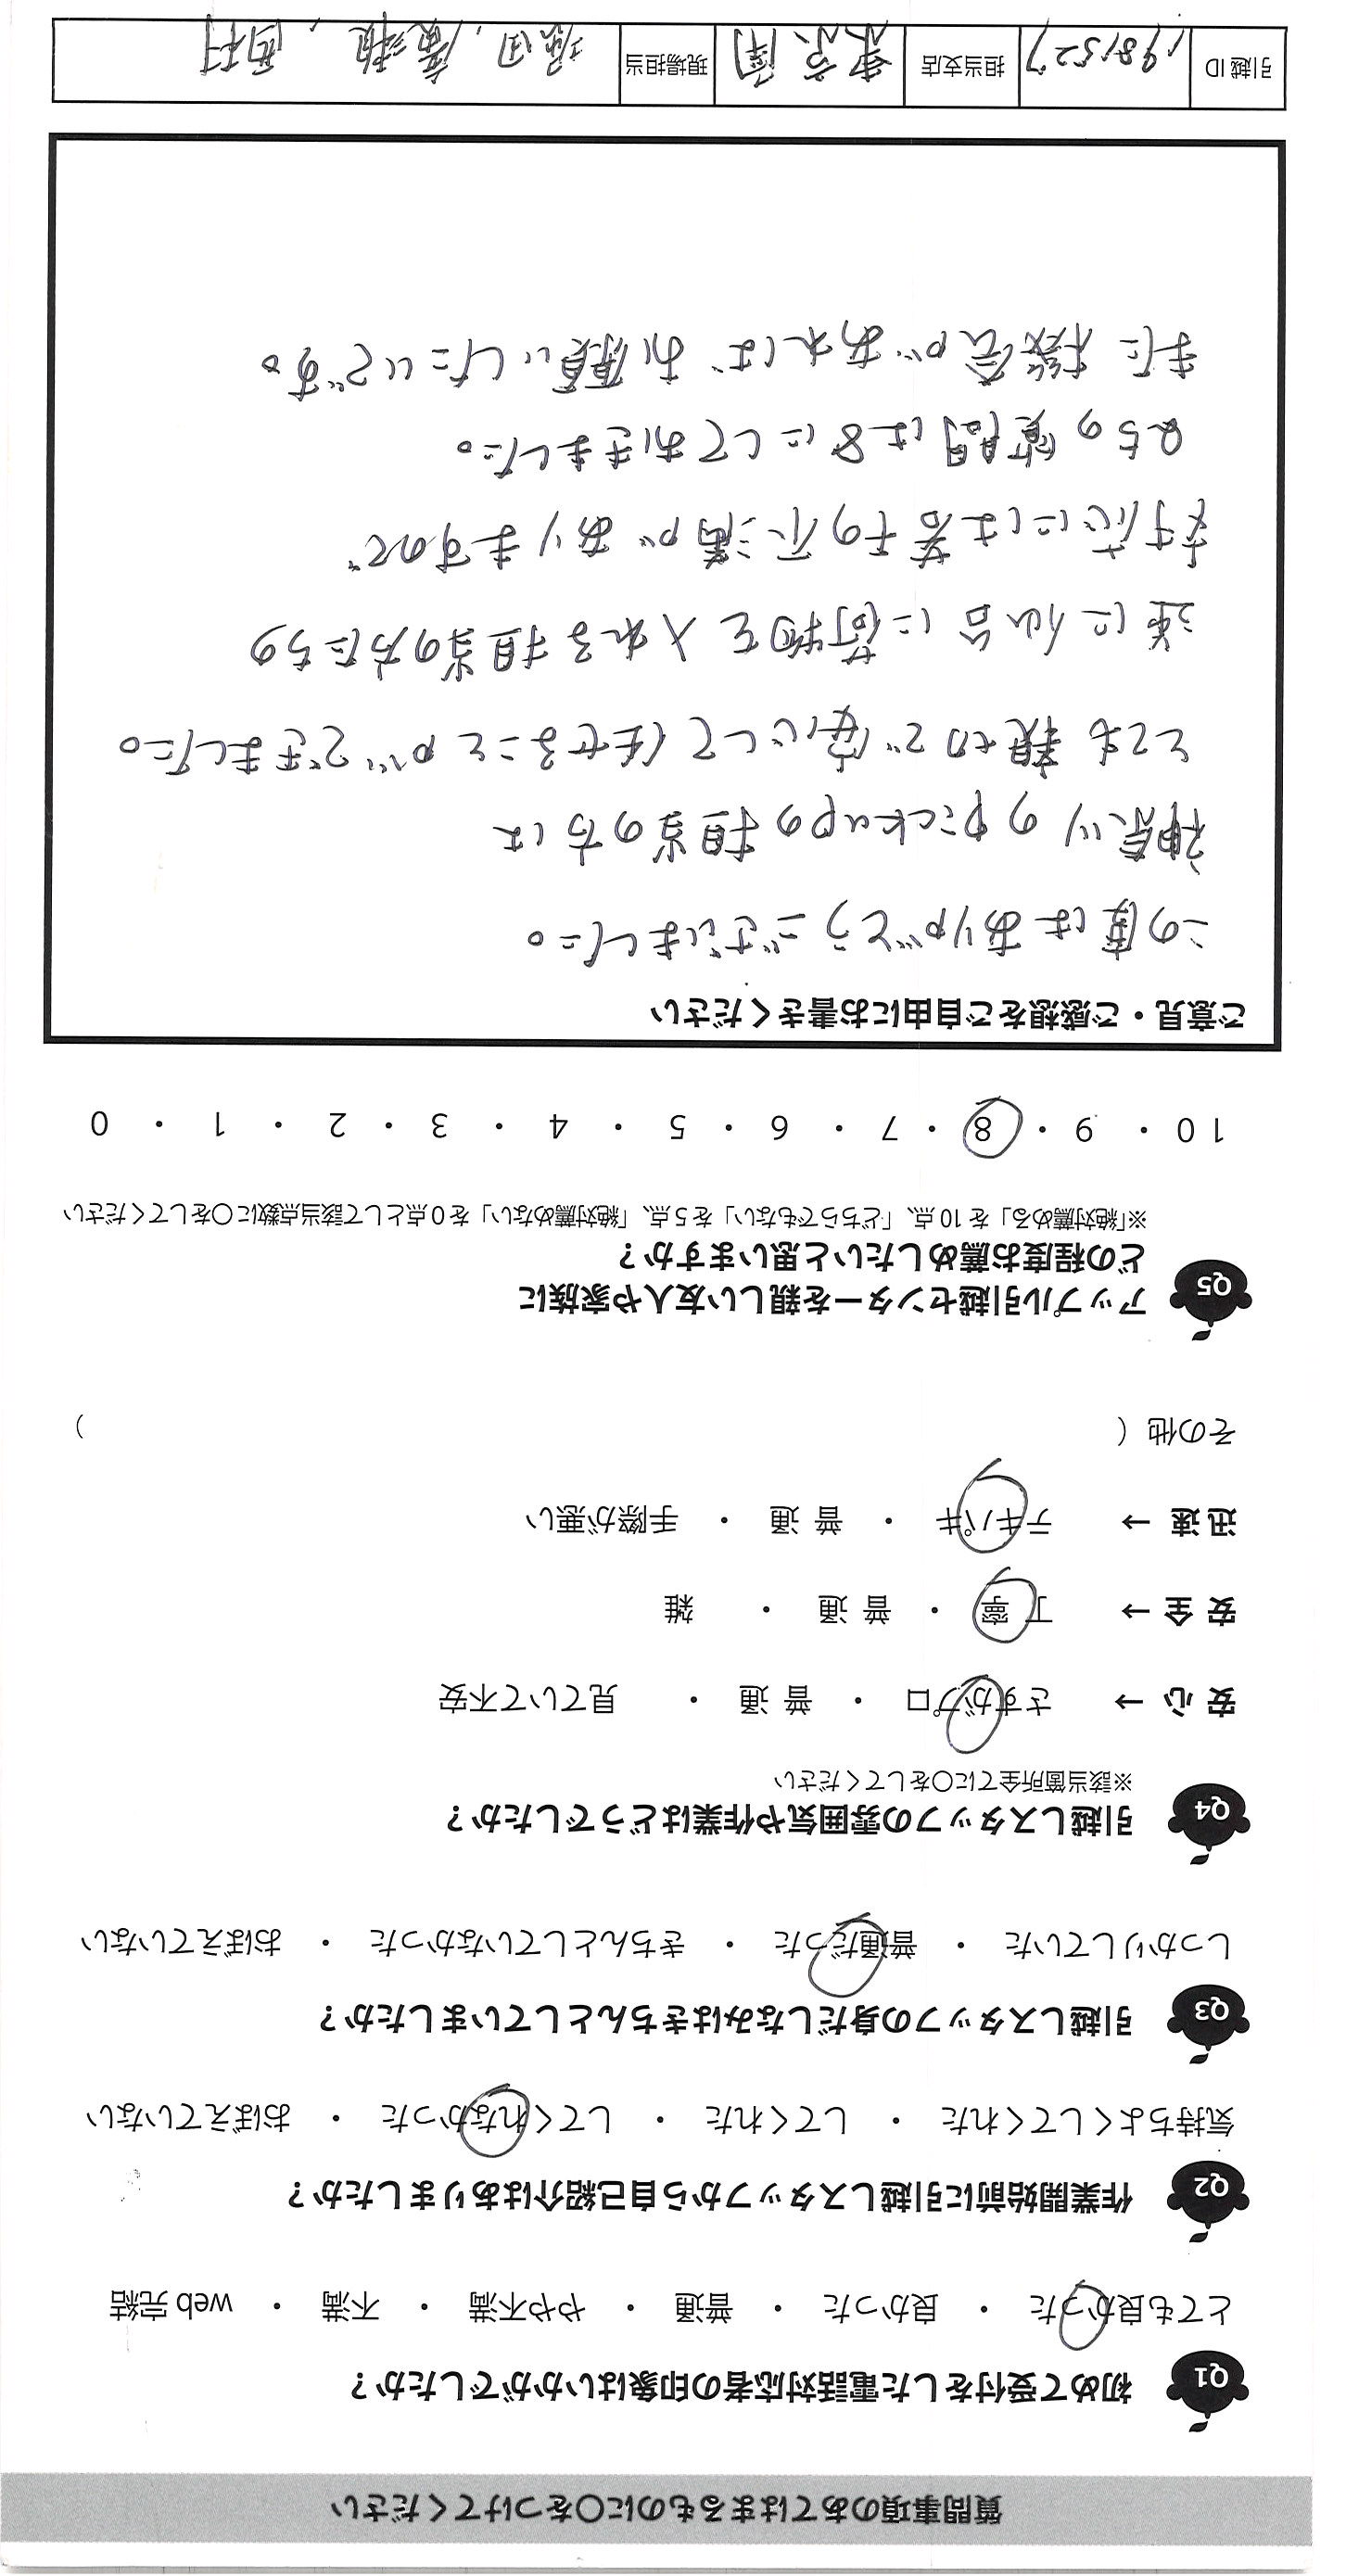 質問事項のあてはまるものに○をつけてください
Q1 初めて受付をした電話対応者の印象はいかがでしたか？
とても良かった ・ 良かった ・ 普通 ・ やや不満 ・ 不満 ・ web 完結
Q2 作業開始前に引越しスタッフから自己紹介はありましたか？
気持ちよくしてくれた ・ してくれた ・ してくれなかった ・ おぼえていない
Q3 引越しスタッフの身だしなみはきちんとしていましたか？
しっかりしていた ・ 普通だった ・ きちんとしていなかった ・ おぼえていない
Q4 引越しスタッフの雰囲気や作業はどうでしたか？
※該当箇所全てに○をしてください
安 心 → さすがプロ ・ 普 通 ・ 見ていて不安
安 全 → 丁 寧 ・ 普 通 ・ 雑
迅 速 → テキパキ ・ 普 通 ・ 手際が悪い
その他（ ）
Q5 アップル引越センターを親しい友人や家族に
どの程度お薦めしたいと思いますか？
※「絶対薦める」を 10 点、「どちらでもない」を 5 点、「絶対薦めない」を 0 点として該当点数に○をしてください
10 ・ 9 ・ 8 ・ 7 ・ 6 ・ 5 ・ 4 ・ 3 ・ 2 ・ 1 ・ 0
ご意見・ご感想をご自由にお書きください
この度はありがとうございました。
神奈川のpickupの担当の方は
とても親切で安心して任せることができました。
逆に仙台に荷物を入れる担当の方たちの
対応には若干の不満がありますので
Q5の質問は8にしておきました。
また機会があれば、お願いしたいです。
引越 ID 1981527 担当支店 東京南 現場担当 廣瀬, 西村